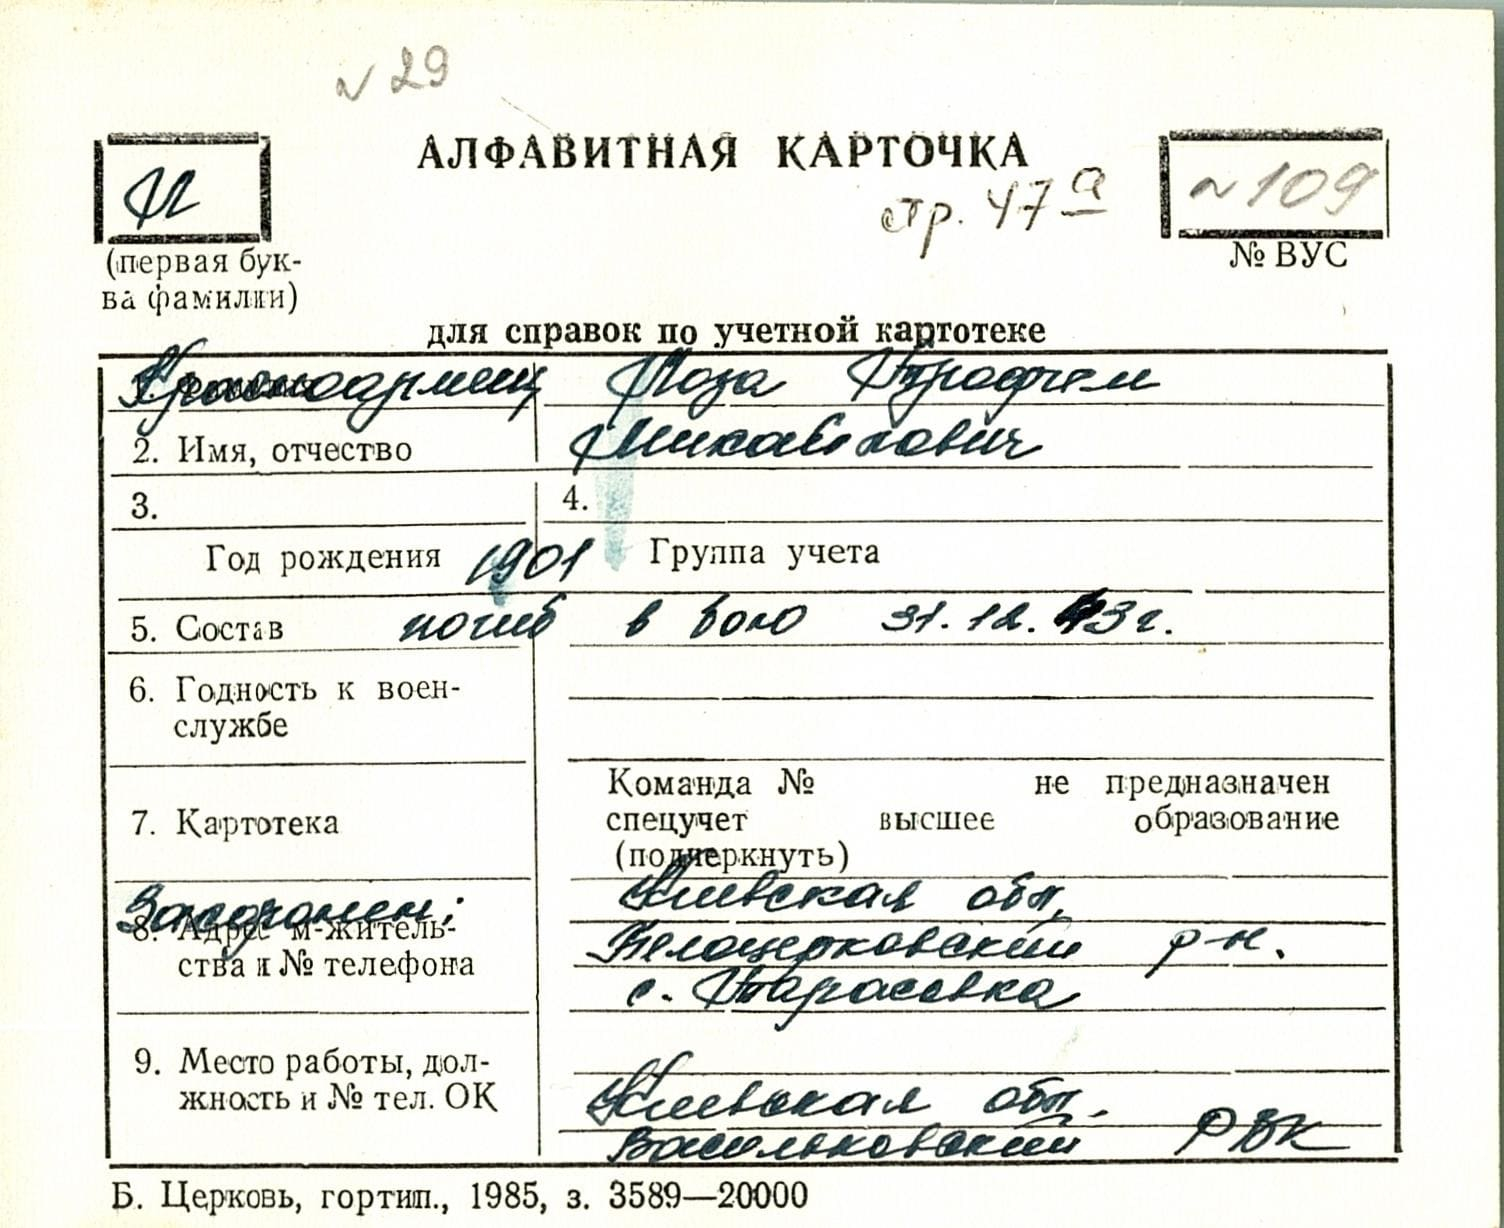 № 29
АЛФАВИТНАЯ КАРТОЧКА
М
стр. 47 а
№ 109
(первая бук-
ва фамилии)
№ ВУС
для справок по учетной картотеке
Красноармеец Моза Трофим
2. Имя, отчество Михайлович
3. 4.
Год рождения 1901 Группа учета
5. Состав погиб в бою 31.12.43г.
6. Годность к воен-
службе
Команда № не предназначен
7. Картотека спецучет высшее образование
(подчеркнуть)
Захоронен: Киевская обл,
8. Адрес м-житель- Белоцерковский р-н.
ства и № телефона
с. Тарасовка
9. Место работы, дол-
жность и № тел. ОК Киевская обл.
Васильковский РВК
Б. Церковь, гортип., 1985, з. 3589—20000